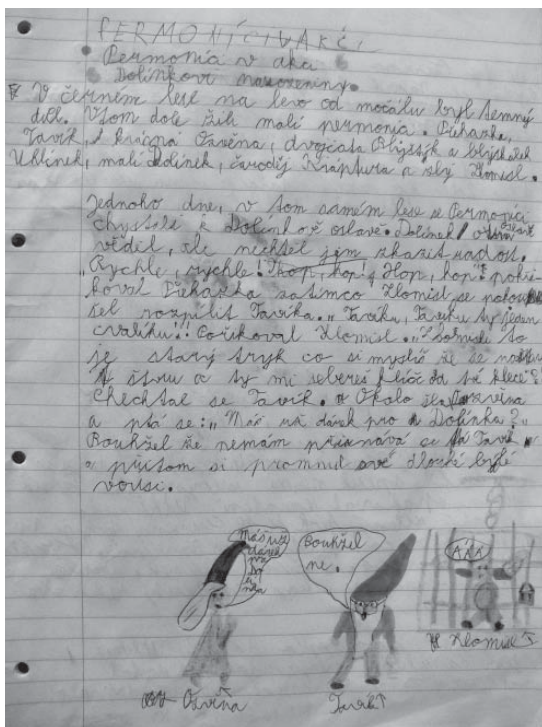 PERMONÍCI V AKCI
Permonia v aka
Dolínkovi narozeniny.
V černém lese na levo od močálu byl temný
důl. V tom dole žili malí permonía.
Tavík, krásná Ozvěna, dvojčata Blýštík a blýskáček
Uhlínek, malí Dolínek, čaroděj Kráptura a zlý Zlomisl.
Jednoho dne, v tom samém lese se Permoníci
chystali k Dolínkově oslavě. Dolínek o
věděl, ale nechtěl jim zkazit radost.
„Rychle, rychle! Hop, hop! Hop, hop!" pokři-
koval zatímco Zlomisl se
šel rozpílit Tavíka. „Tavíku, Tavíku ty jeden
cvalíku!!! Pořikoval Zlomisl. to
je starý tryk co si myslíš že se
a ty mi sebereš klíč od tvé klece"?
Chechtal se Tavík. Okolo šla Ozvěna
a ptá se: „Máš už dárek pro Dolínka?"
Bouhžel že nemám přiznává se Tavík
a přitom si promnul své dlouhé bylé
vousi.
Máš už
dárek
pro
Do
lí
nka
Bouhžel
ne.
ÁÁÁ
Zlomisl ↑
Ozvěna
Tavík ↑